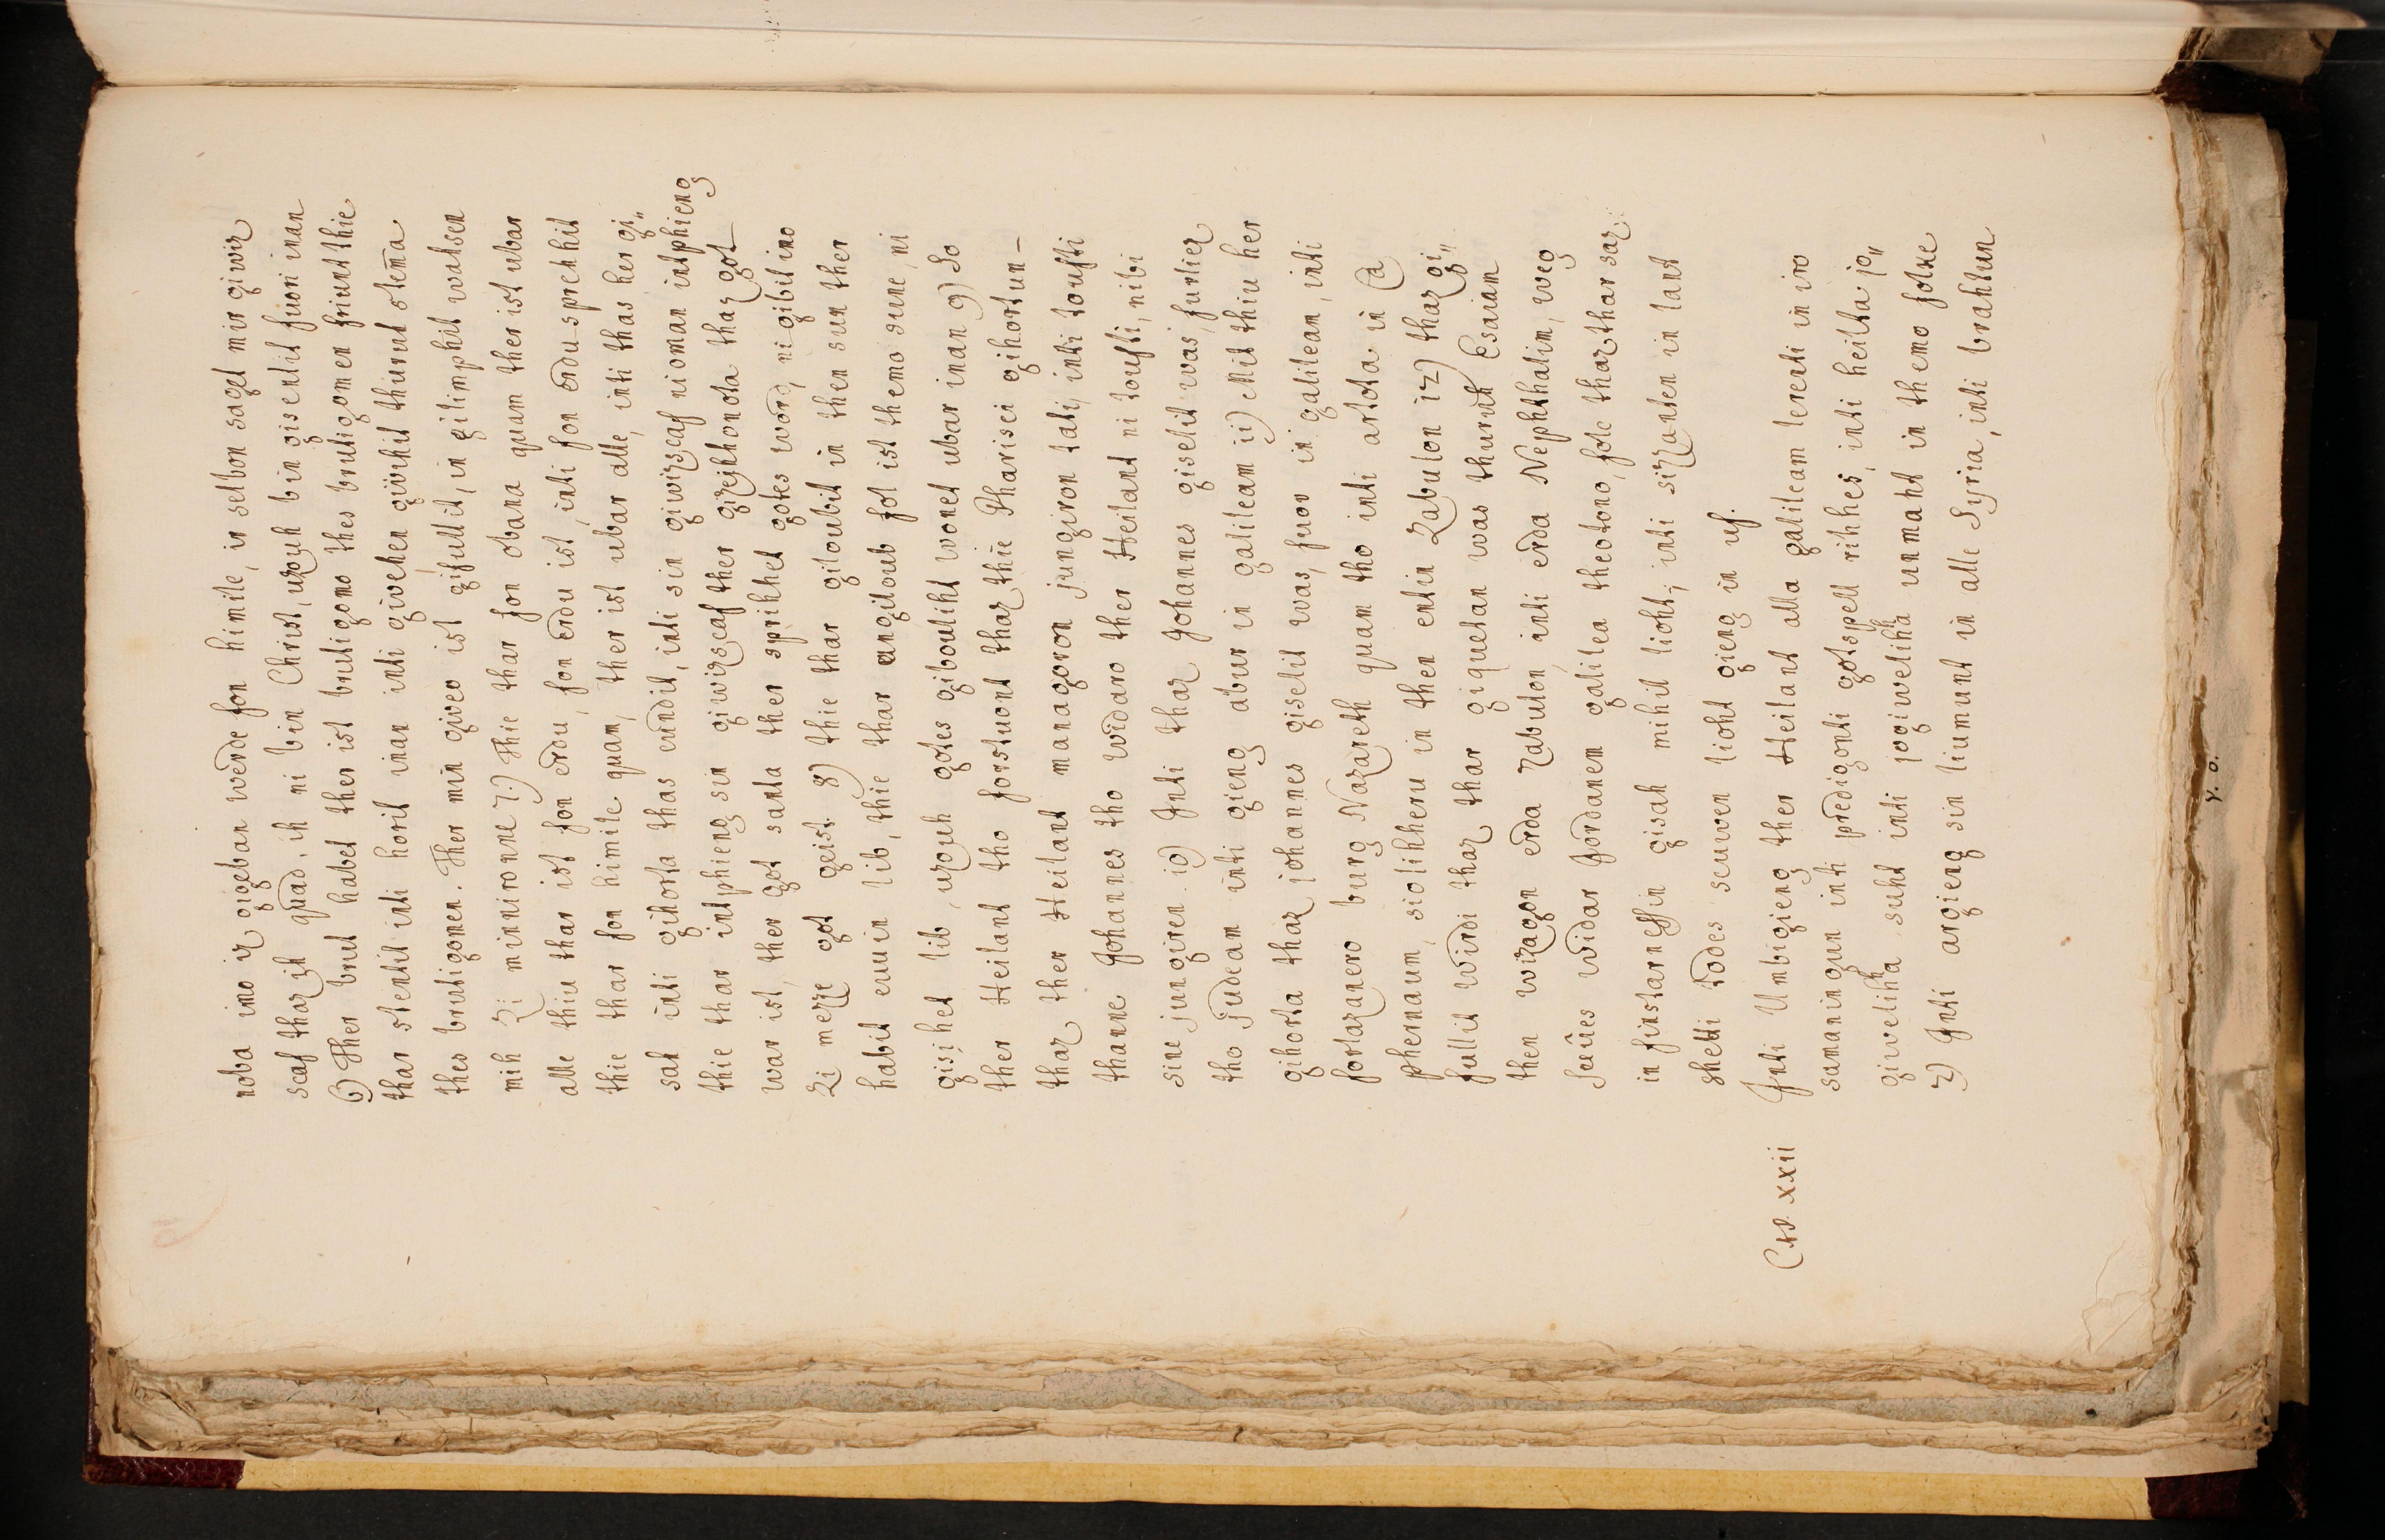 noba imo iz gigeban werde fon himile, ir selbon saget mir giwiz
scaf thaz ih quad, ih ni bin Christ, uzouh bin gisentit fuori inan
6) Ther brut habet ther ist brutigomo thes brutigomen friunt thie
thar stentit inti horit inan inti givehen givihit thuruh stemā
thes brutigomen. Ther min giveo ist gifullit, in gilimphit wahsen
mih zi minnironne 7.) Thie thar fon obana quam ther ist ubar
alle thiu thar ist fon erdu, fon erdu ist, inti fon erdu sprehhit
thie thar fon himile quam, ther ist ubar alle, inti thas her gi„
sah inti gihorta thas cundit, inti sin giwizscaf nioman intphieng
thie thar intphieng sin giwizscaf ther gizeihhonota thaz got
war ist, ther got santa ther sprihhet gotes word, ni gibit imo
Zi mezze got geist. 8) thie thar giloubit in then sun ther
habit ewin lib, thie thar angiloub fol ist themo sune, ni
gisihet lib, uzouh gotes gibouliht wonet ubar inan 9) So
ther Heilant tho forstuont thaz thie Pharisei gihortun-
thaz ther Heilant managoron jungiron tati, inti toufti
thanne Johannes tho widaro ther Heilant ni toufti, nibi
sine jungiren 10) Inti thaz Johannes giselit was, furliez
tho Judeam inti gieng abur in galileam 11) Mit thiu her
gihorta thaz johannes giselit was, fuor in galilean, inti
forlazanero burg Nazareth quam tho inti artota in Ca
phernaum, siolihheru in then entin Zabulon 12) thaz gi„
fullit wirdi thaz thar giquetan was thuruh Esaiam
then wizagon erda Zabulon, inti erda Nephthalim, weg
seûes widar Jordanem galilea theotono, folc thaz thar saz
in finstarnessin gisah mihil lioht, inti sizzanten in lant
shetti Todes scuwen lioht gieng in uf.
Cap. xxii Inti Umbigieng ther Heilant alla galileam lerenti in iro
samaningun inti predigonti gotspell rihhes, inti heilta jo„
giweliħħa suht inti jogiweliħħa unmaht in themo folke
2) Inti argieng sin liumunt in alle Syria, inti brahtun